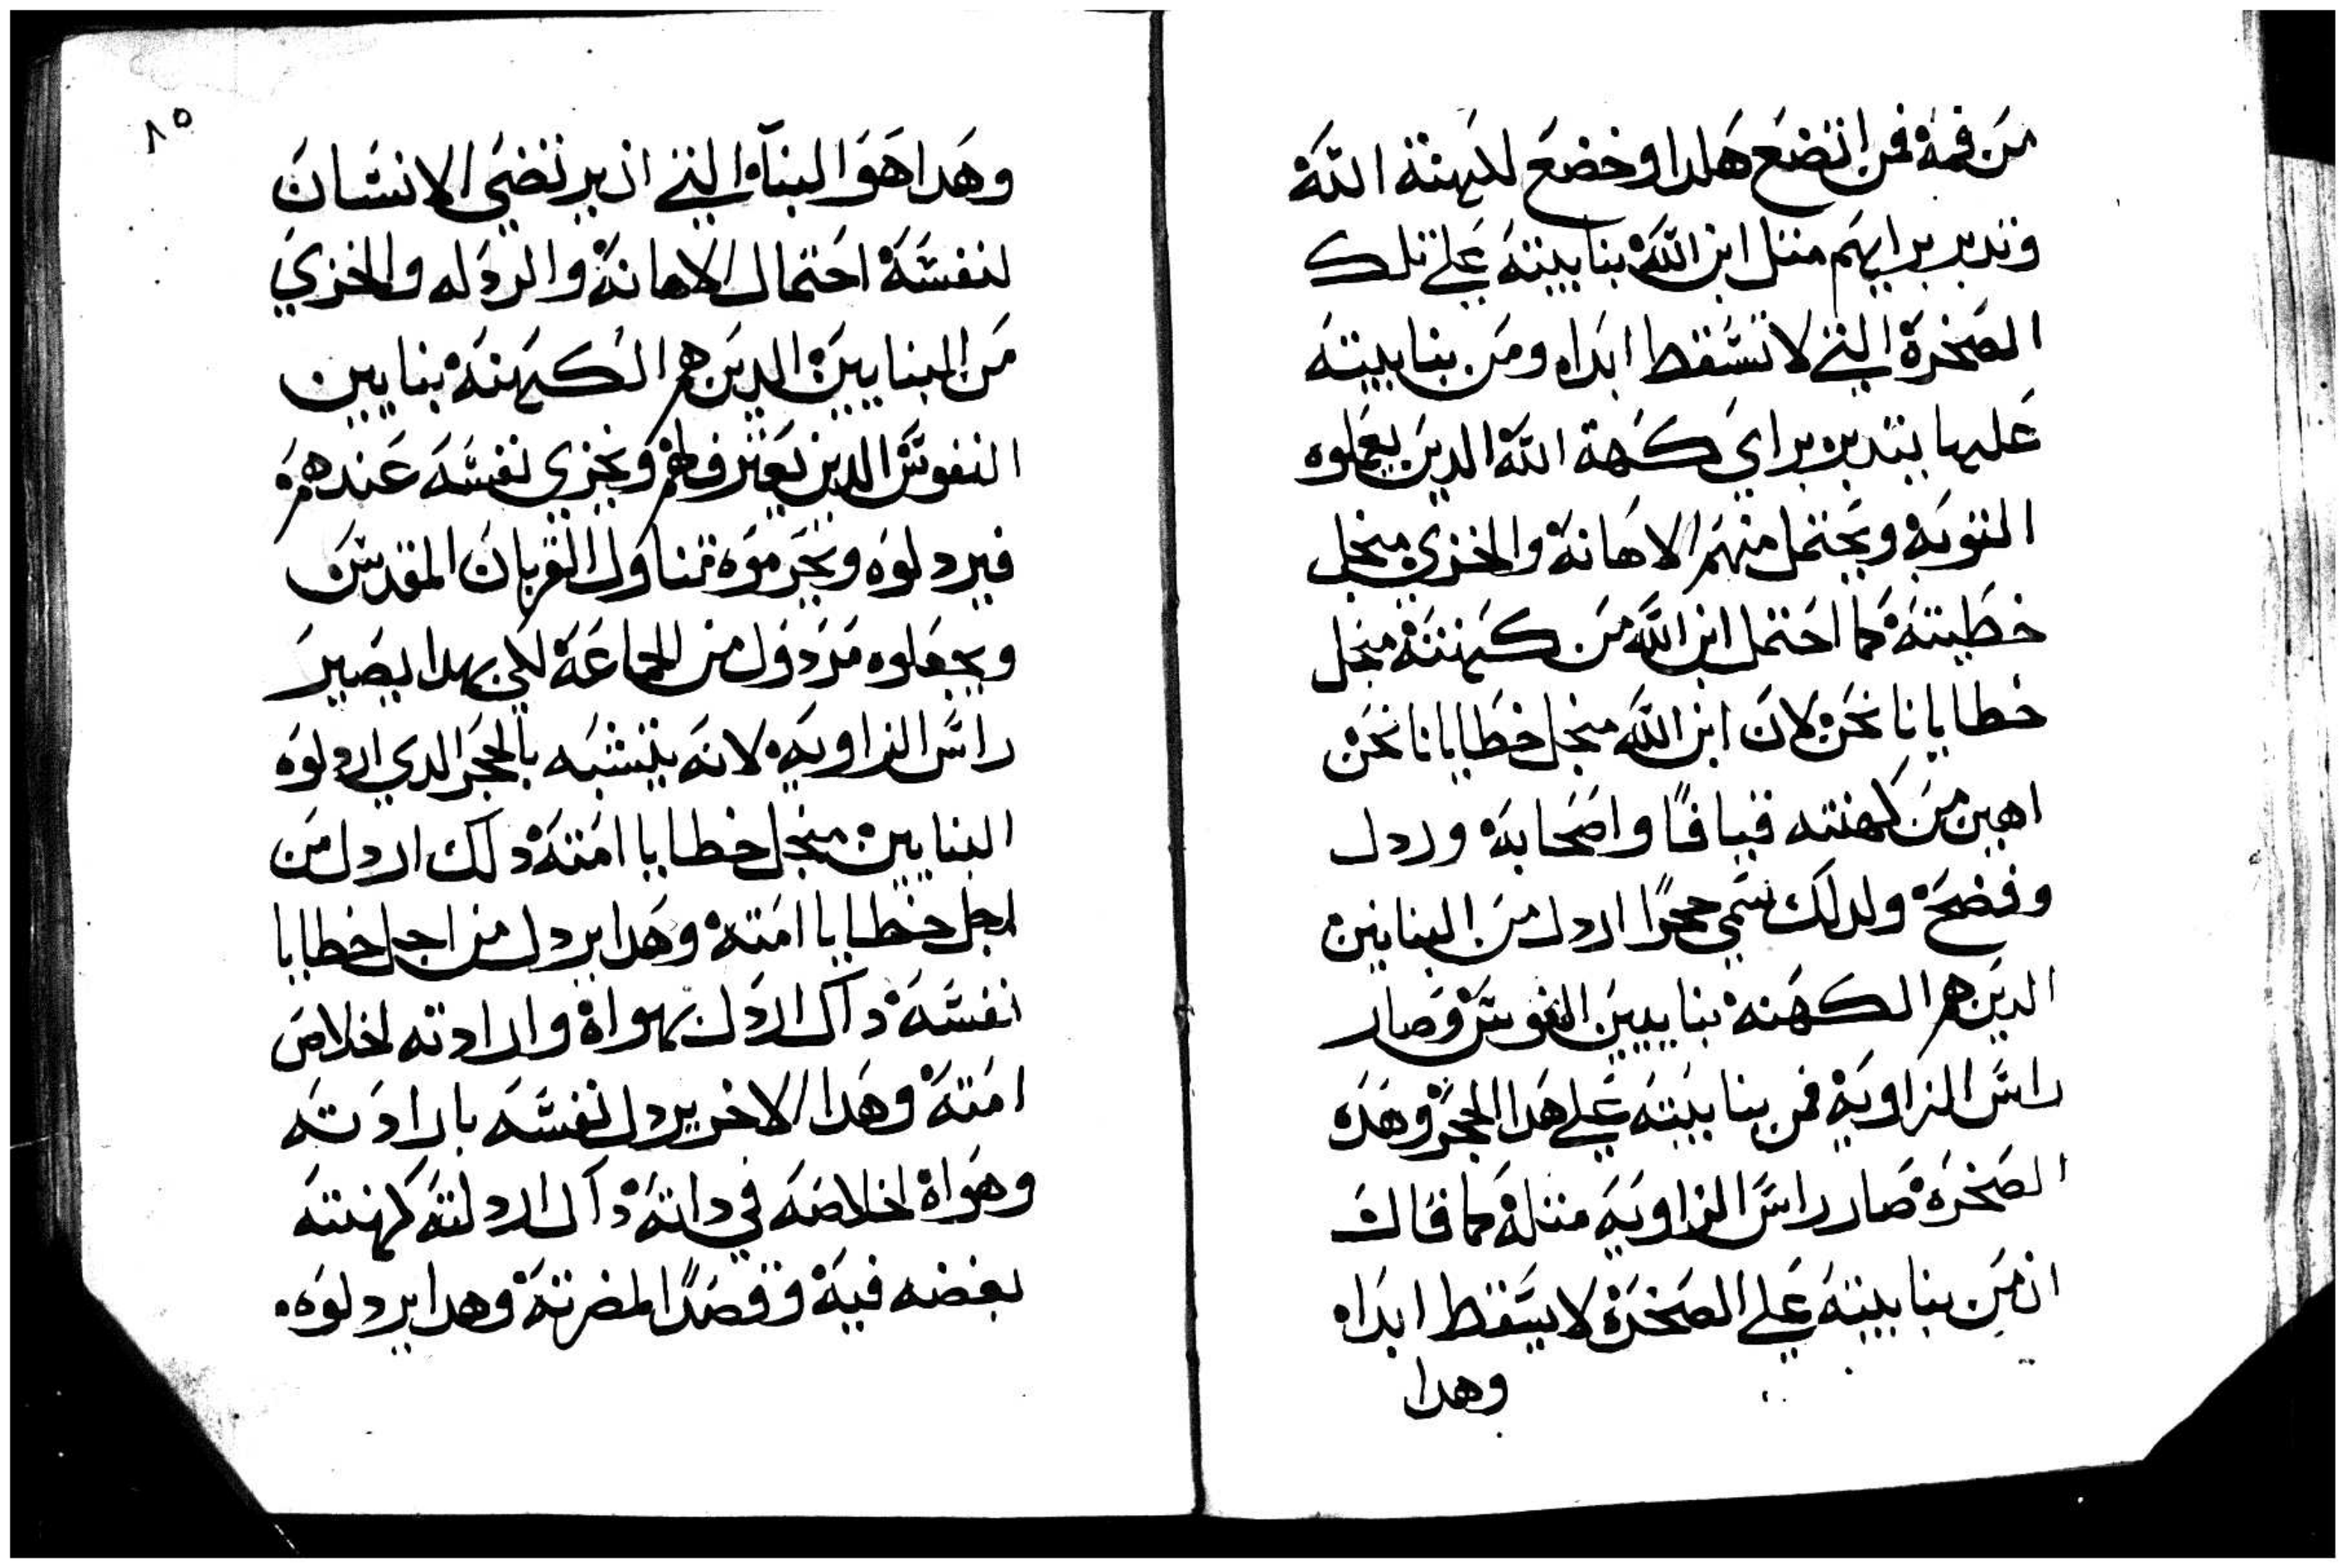 من فمه فمن اتضع هكدا وخضع لكهنة الله
وتدبر برايهم متل ابن الله بنا بيته علي تلك
الصخرة التي لا تسقط ابداه ومن بنا بيته
عليها يتدبر براي كهنة الله الدين يعملوه
التوبه ويحتمل منهم الاهانه والخزي منجل
خطيته كما احتمل ابن الله من كهنته منجل
خطايانا نحن لان ابن الله منجل خطايانا نحن
اهين من كهنته قيافا واصحابه وردل
وفضح ولدلك سمي حجرا اردل من البنايين
الدين هم الكهنه بنايين النفوس وصار
راس الزاويه فمن بنا بيته علي هدا الحجر وهده
الصخره صار راس الزاويه متله كما قال
ان من بنا بيته علي الصخره لا يسقط ابداه
وهدا
٨٥
وهدا هو البنا والتي اذ يرتضي الانسان
لنفسه احتمال الاهانه والردله والخزي
من البنايين الدين هم الكهنه بنايين
النفوس الدين يعترف لهم ويخزي نفسه عندهم
فيردلوه ويحرموه تناول القربان المقدس
ويجعلوه مردول من الجماعه لكي بهدا يصير
راس الزاويه لانه يتشبه بالحجر الدي اردلوه
البنايين منجل خطايا امته دلك اردل من
اجل خطايا امته وهدا يردل من اجل خطايا
نفسه داك اردل بهواه وارادته لخلاص
امته وهدا الاخر يردل نفسه بارادته
وهواه لخلاصه في داته داك اردلته كهنته
بغضه فيه وقصدا لمضرته وهدا يردلوه